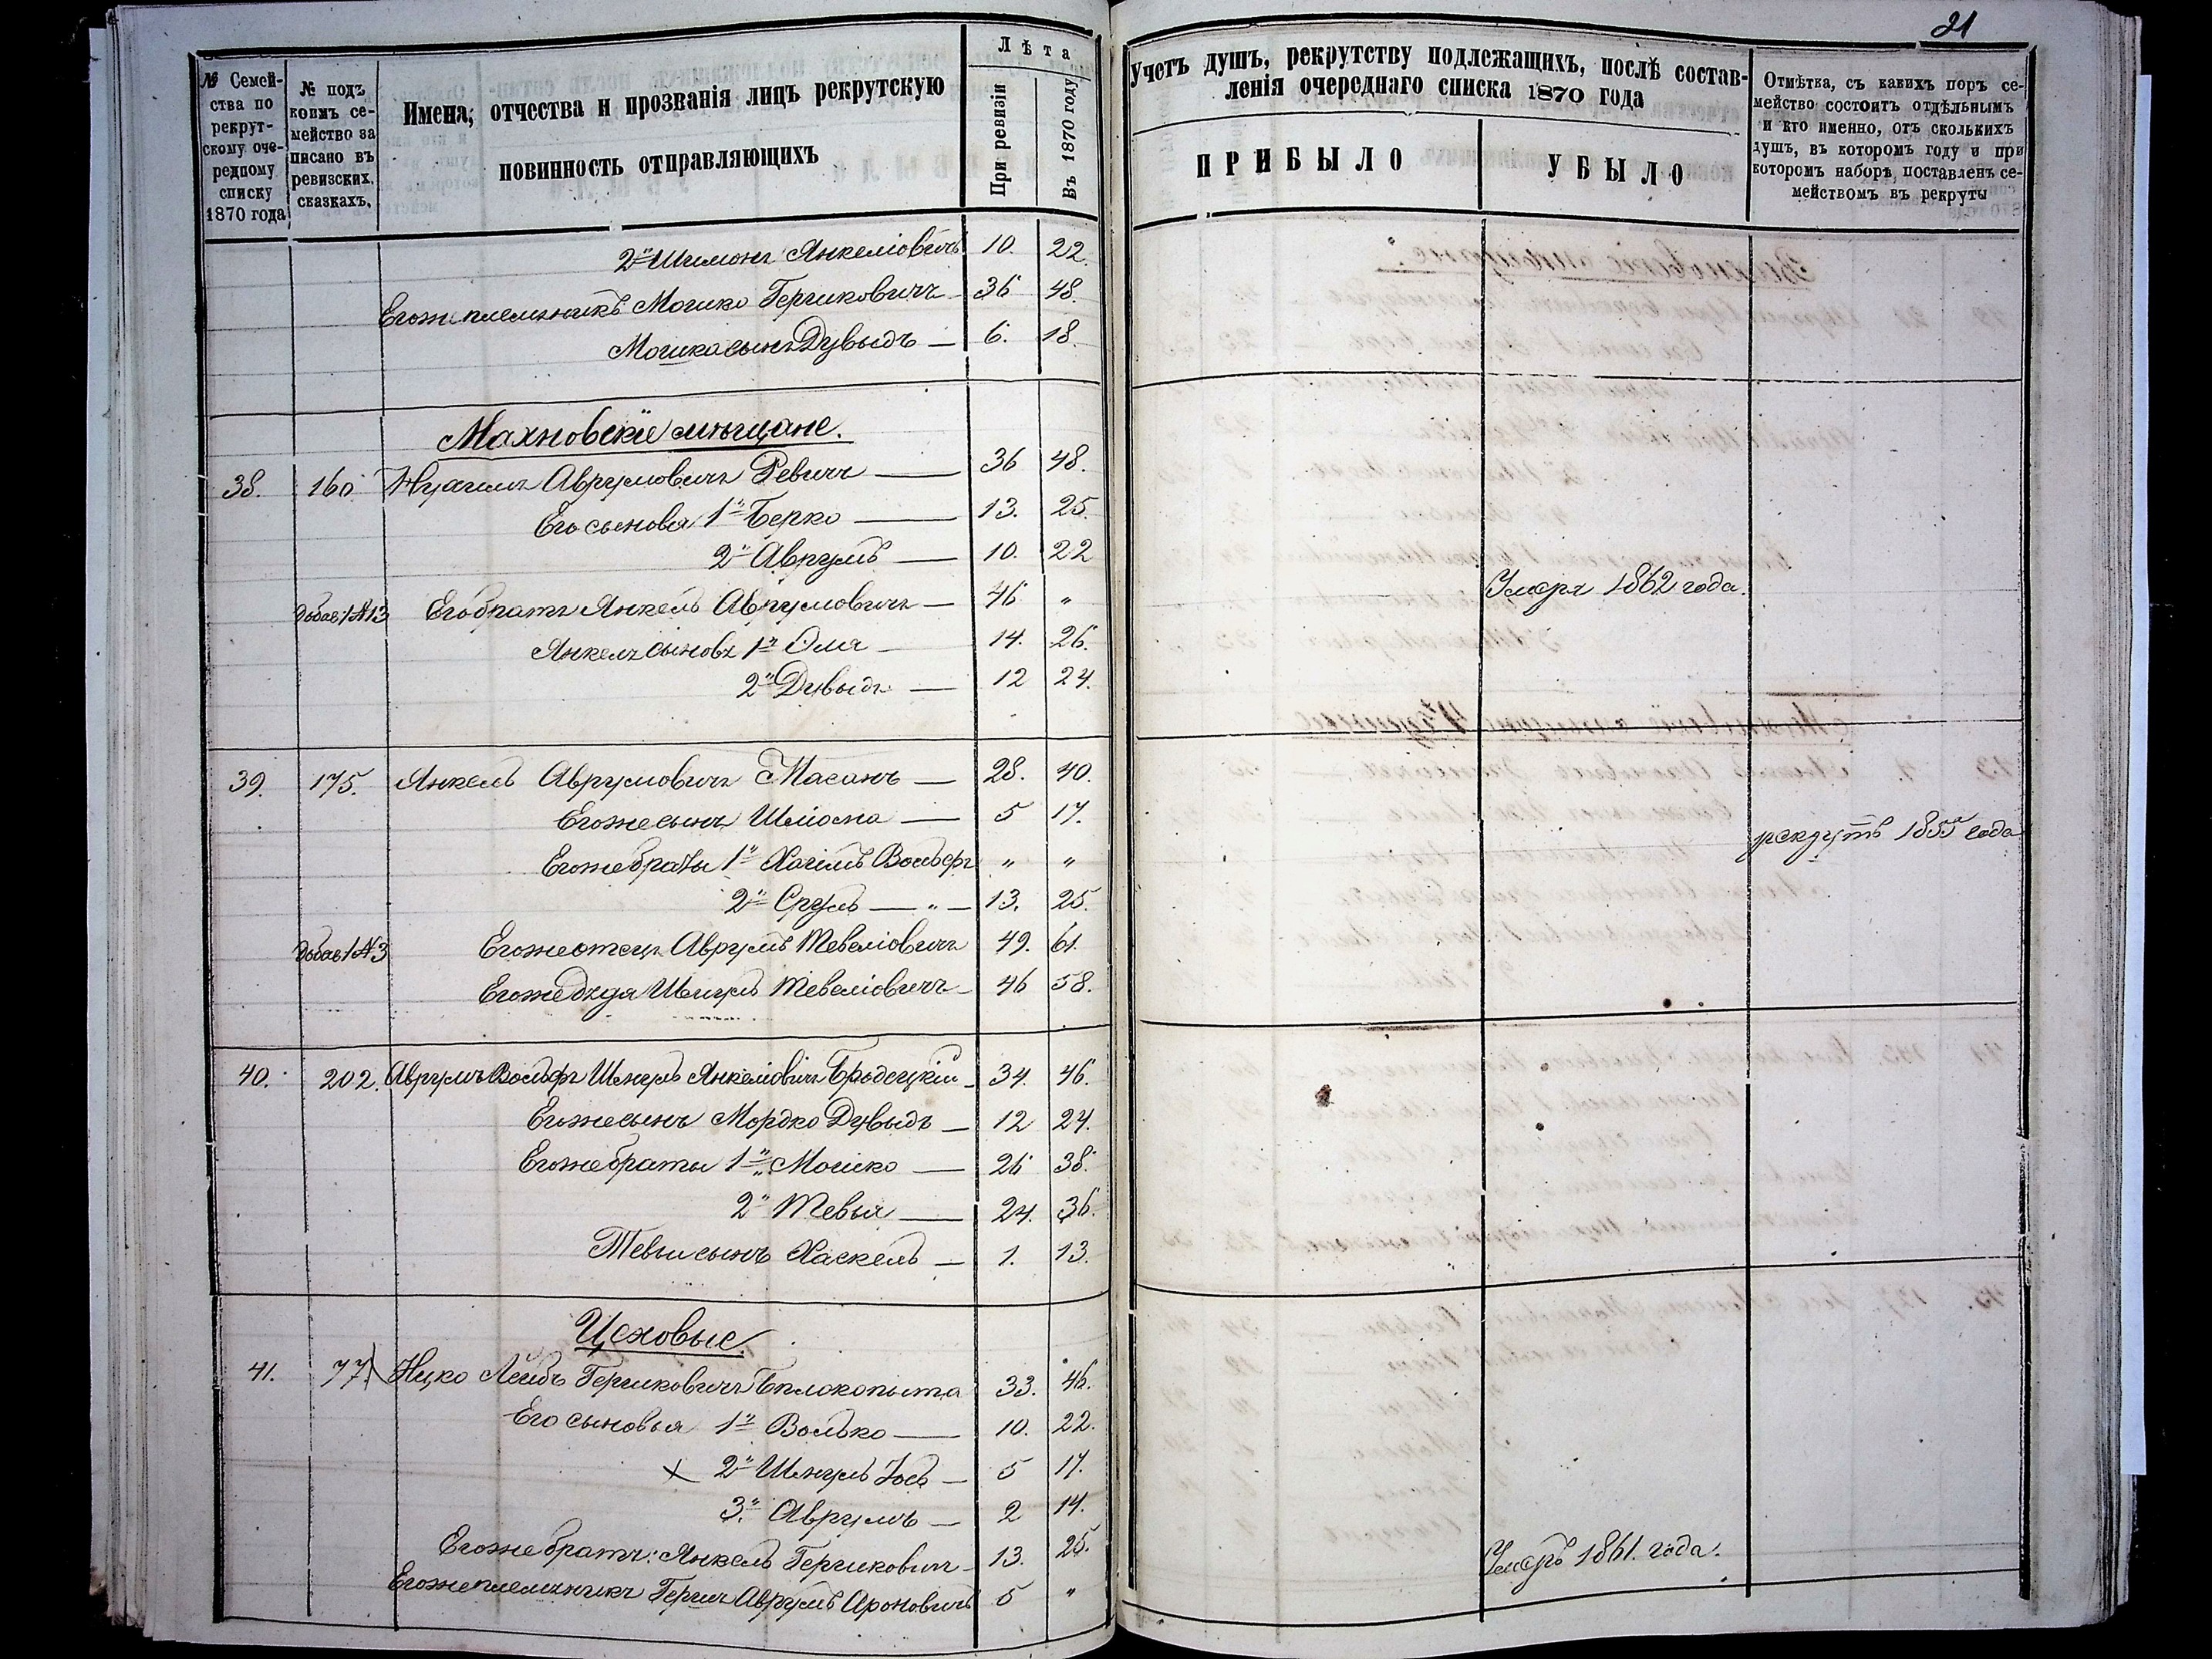 21
№ Семей-
ства по
рекрут-
скому оче-
редному
списку
1870 года
№ подъ
коимъ се-
мейство за
писано въ
ревизскихъ
сказкахъ.
Имена, отчества и прозванія лицъ рекрутскую
повинность отправляющихъ
Лѣта
При ревизіи
Въ 1870 году
Учетъ душъ, рекрутству подлежащихъ, послѣ состав-
ленія очереднаго списка 1870 года
ПРИБЫЛО
УБЫЛО
Отмѣтка, съ какихъ поръ се-
мейство состоитъ отдѣльнымъ
и кто именно, отъ сколькихъ
душъ, въ которомъ году и при
которомъ наборѣ, поставленъ се-
мействомъ въ рекруты
2й Шимонъ Янкеліовичъ 10. 22.
Егоже племянникъ Мошко Гершковичъ 36 48.
Мошка сынъ Дувыдъ — 6. 18.
Махновскіе мѣщане.
38. 160 Нухимъ Аврумовичъ Ревичъ — 36 48.
Его сыновья 1й Берко — 13. 25.
2й Аврумъ — 10. 22
Его братъ Янкель Аврумовичъ — 46 „ Умеръ 1862 года.
Янкеля сыновя 1й — 14. 26.
2й Дувыдъ — 12 24.
39. 175. Янкель Аврумовичъ Масанъ — 28. 40.
Егоже сынъ Шлиома — 5 17.
Егоже браты 1й Хаимъ Вольфъ „ „ рекрутъ 1855 года
2й Сруль — „ — 13. 25.
Егоже отецъ Аврумъ Тевеліовичъ 49. 61.
Егоже дядя Шмуль Тевеліовичъ — 46 58.
40. 202. Аврумъ Вольфъ Шмуль Янкеліовичъ Бродецкій — 34. 46.
Егоже сынъ Мордко Дувыдъ — 12 24.
Егоже браты 1й Мошко — 26 38.
2й Тевья — 24. 36.
Тевьи сынъ Хаскель — 1. 13.
Цеховые.
41. 77. Ицко Лейбъ Гершковичъ Бѣлокопыта 33. 46.
Его сыновья 1й Волько — 10. 22.
× 2й Шмуль Іось — 5 17.
3й Аврумъ — 2 14.
Егоже братъ: Янкель Гершковичъ — 13. 25.
Егоже племянникъ Гершъ Аврумъ Ароновичъ 5 „ Умеръ 1861. года.